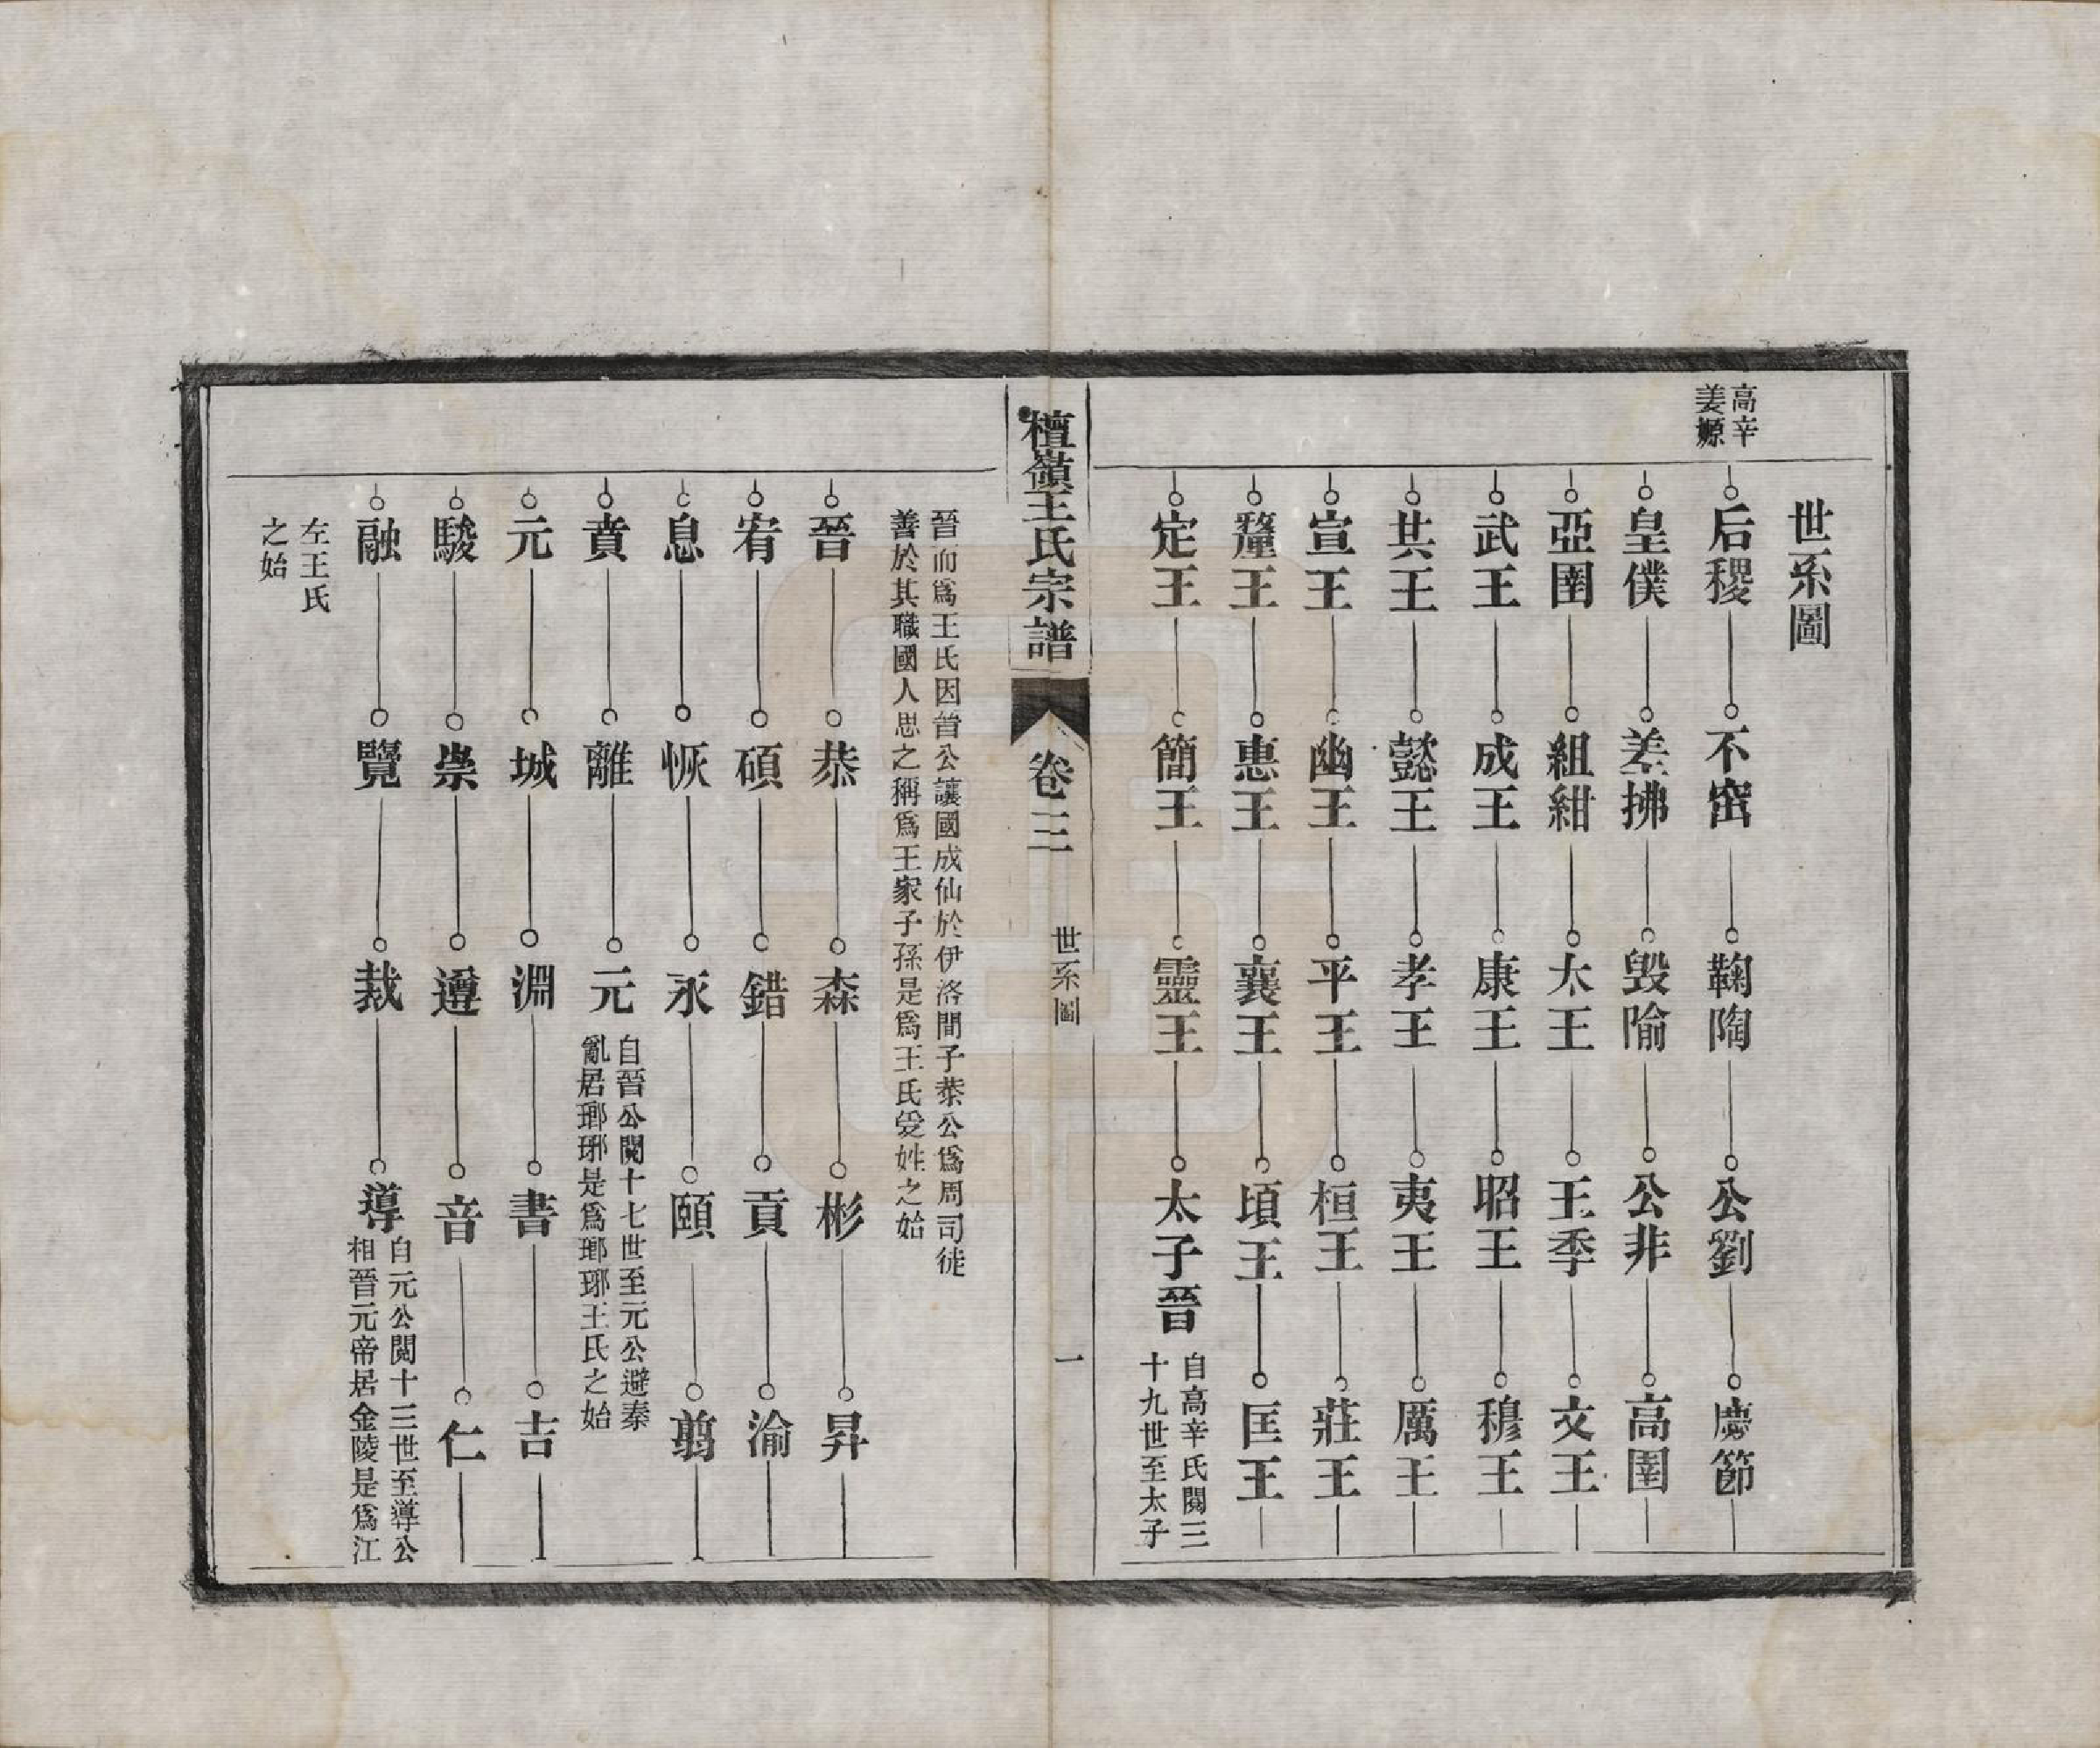 世系圖
高辛
姜嫄
后稷 不窋 鞠陶 公劉 慶節
皇僕 差拂 毁隃 公非 高圉
亞圉 組紺 太王 王季 文王
武王 成王 康王 昭王 穆王
共王 懿王 孝王 夷王 厲王
宣王 幽王 平王 桓王 莊王
釐王 惠王 襄王 頃王 匡王
定王 簡王 靈王 太子晉
自高辛氏閱三
十九世至太子
檀嶺王氏宗譜 卷三 世系圖 一
晉而爲王氏因晉公讓國成仙於伊洛間子恭公爲周司徒
善於其職國人思之稱爲王家子孫是爲王氏受姓之始
晉 恭 森 彬 昇
宥 碩 錯 貢 渝
息 恢 永 頤 翦
賁 離 元
自晉公閱十七世至元公避秦
亂居瑯琊是爲瑯琊王氏之始
元 城 淵 書 吉
駿 崇 遵 音 仁
融 覽 裁 導
自元公閱十三世至導公
相晉元帝居金陵是爲江
左王氏
之始